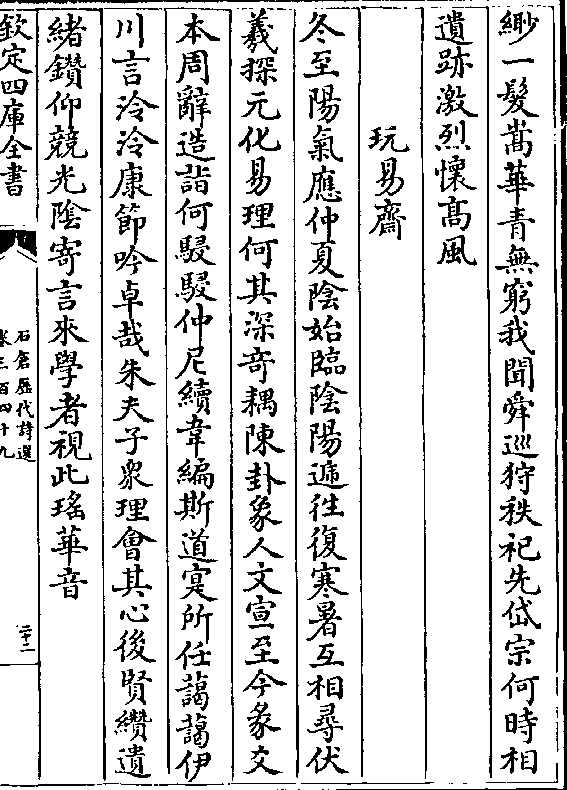 緲一髮嵩華青無窮我聞舜巡狩秩祀先岱宗何時相
遺跡激烈懷髙風
玩易齋
冬至陽氣應仲夏陰始臨陰陽遞徃復寒暑互相尋伏
羲探元化易理何其深竒耦陳卦象人文宣至今彖爻
本周辭造詣何駸駸仲尼續韋編斯道寔所任藹藹伊
川言泠泠康節吟卓哉朱夫子衆理㑹其心後賢纘遺
緒鑽仰競光陰寄言來學者視此瑤華音
欽定四庫全書
石倉歴代詩選
卷三百四十九
二十二